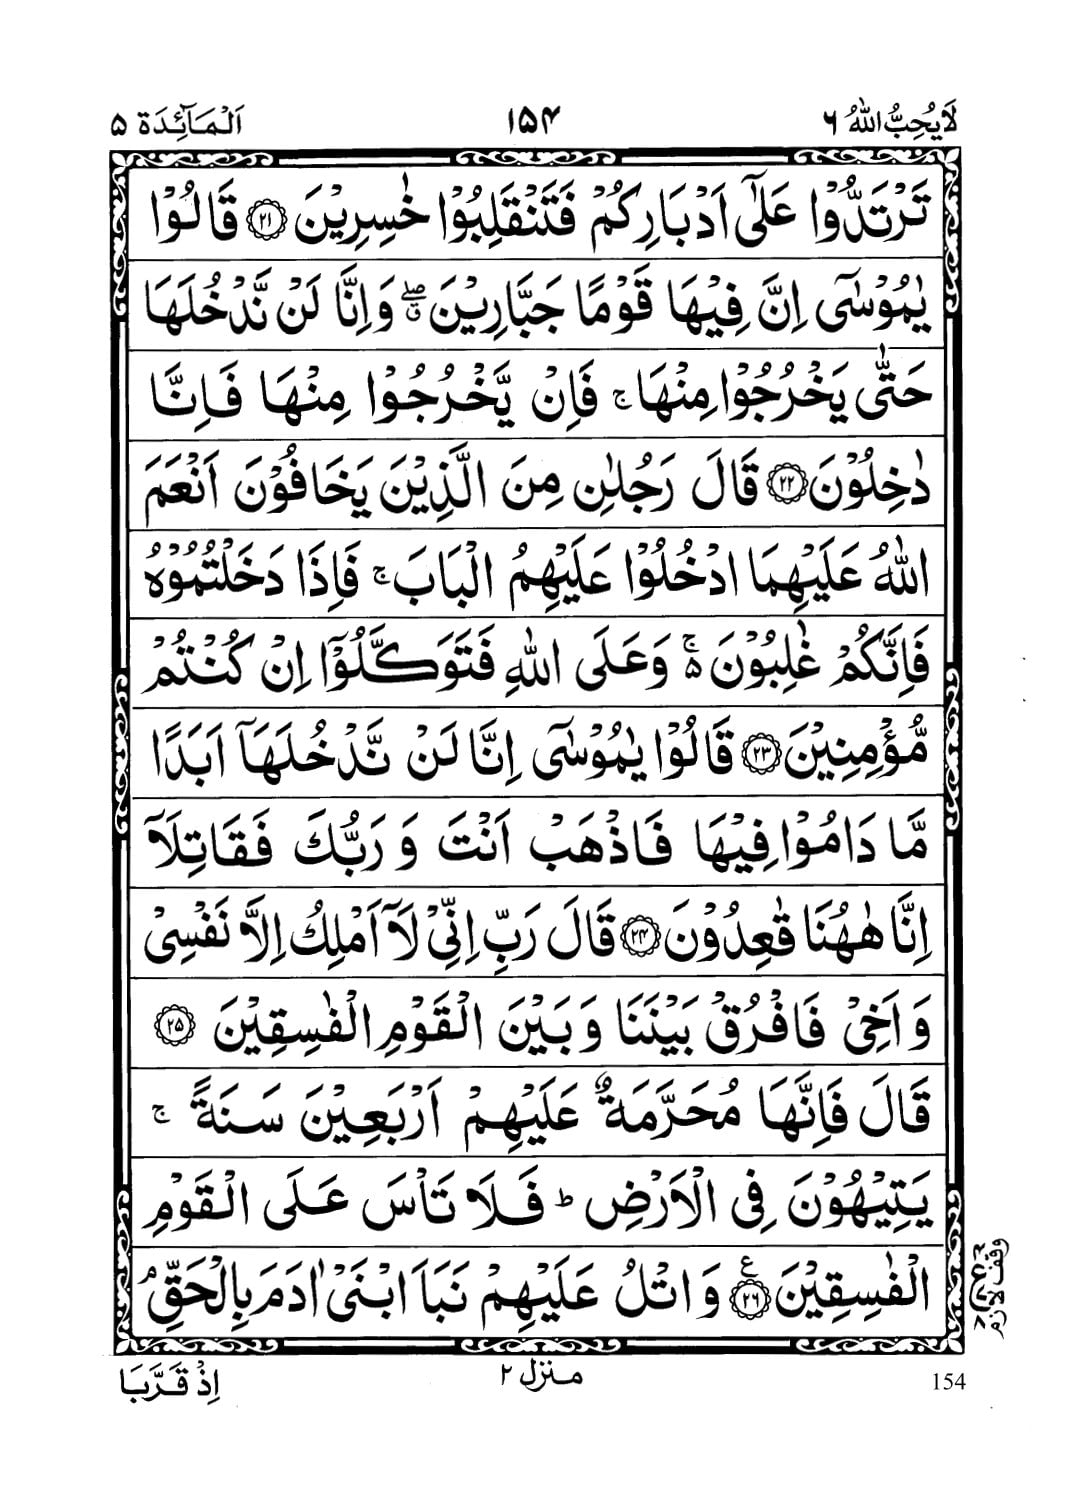 لَا يُحِبُّ اللهُ ۶ ۱۵۴ اَلْمَآئِدَة ۵
تَرْتَدُّوْا عَلٰٓى اَدْبَارِكُمْ فَتَنْقَلِبُوْا خٰسِرِيْنَ ۲۱ قَالُوْا
يٰمُوْسٰٓى اِنَّ فِيْهَا قَوْمًا جَبَّارِيْنَ ۖۗ وَاِنَّا لَنْ نَّدْخُلَهَا
حَتّٰى يَخْرُجُوْا مِنْهَا ۚ فَاِنْ يَّخْرُجُوْا مِنْهَا فَاِنَّا
دٰخِلُوْنَ ۲۲ قَالَ رَجُلٰنِ مِنَ الَّذِيْنَ يَخَافُوْنَ اَنْعَمَ
اللهُ عَلَيْهِمَا ادْخُلُوْا عَلَيْهِمُ الْبَابَ ۚ فَاِذَا دَخَلْتُمُوْهُ
فَاِنَّكُمْ غٰلِبُوْنَ ۵ۚ وَعَلَى اللهِ فَتَوَكَّلُوْٓا اِنْ كُنْتُمْ
مُّؤْمِنِيْنَ ۲۳ قَالُوْا يٰمُوْسٰٓى اِنَّا لَنْ نَّدْخُلَهَآ اَبَدًا
مَّا دَامُوْا فِيْهَا فَاذْهَبْ اَنْتَ وَرَبُّكَ فَقَاتِلَآ
اِنَّا هٰهُنَا قٰعِدُوْنَ ۲۴ قَالَ رَبِّ اِنِّيْ لَآ اَمْلِكُ اِلَّا نَفْسِيْ
وَاَخِيْ فَافْرُقْ بَيْنَنَا وَبَيْنَ الْقَوْمِ الْفٰسِقِيْنَ ۲۵
قَالَ فَاِنَّهَا مُحَرَّمَةٌ عَلَيْهِمْ اَرْبَعِيْنَ سَنَةً ۚ
يَتِيْهُوْنَ فِي الْاَرْضِ ؕ فَلَا تَاْسَ عَلَى الْقَوْمِ
الْفٰسِقِيْنَ ۲۶ ع وَاتْلُ عَلَيْهِمْ نَبَاَ ابْنَيْ اٰدَمَ بِالْحَقِّ ۘ
وقف لازم
اِذْ قَرَّبَا منزل ۲ 154